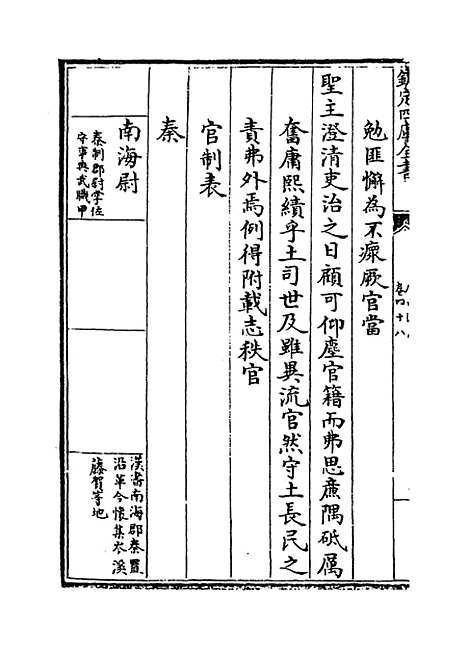 欽定四庫全書
卷四十八
勉匪懈為不瘝厥官當
聖主澄清吏治之日顧可仰塵官籍而弗思廉隅砥厲
奮庸熙績乎土司世及雖異流官然守土長民之
責弗外焉例得附載志秩官
官制表
秦
南海尉
秦制郡尉掌佐
守事典武職甲
漢書南海郡秦置
沿革今懷集岑溪
藤賀等地